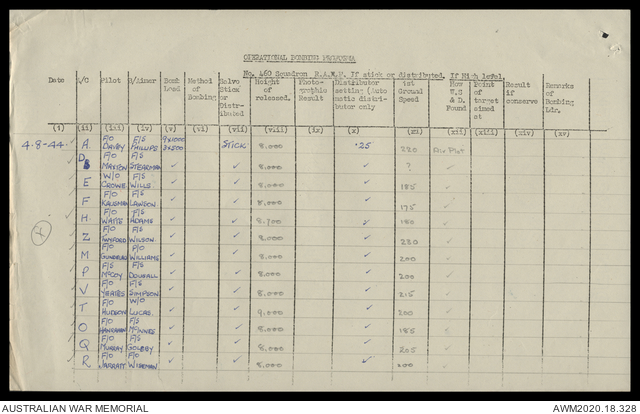 OPERATIONAL BOMBING PROFORMA
No. 460 Squadron R.A.A.F. If stick or distributed. If High level.
Date A/C Pilot B/Aimer Bomb Load Method of Bombing Salvo Stick or Distributed Height of released. Photographic Result Distributor setting (Automatic distributor only) 1st Ground Speed How U.S & D. Found Point of target aimed at Result if conserve Remarks of Bombing Ldr.
(i) (ii) (iii) (iv) (v) (vi) (vii) (viii) (ix) (x) (xi) (xii) (xiii) (xiv) (xv)
4-8-44 A F/O DAVEY F/S PHILLIPS 9x1000 STICK 8,000 .25 220 Air Plot
F/O MAXTON F/S STEARMAN ✓ ✓ 8,000 ✓ ? ✓
E W/O CROWE F/S WILLS ✓ ✓ 8,000 ✓ 185 ✓
F F/O F/S LAWSON ✓ ✓ 8,000 ✓ 175 ✓
H F/O WATTS F/S ADAMS ✓ ✓ 8,700 ✓ 180 ✓
Z F/O F/S WILSON ✓ ✓ 8,000 ✓ 230 ✓
M F/O F/O WILLIAMS ✓ ✓ 8,000 ✓ 200 ✓
P F/S McCOY F/S DOUGALL ✓ ✓ 8,000 ✓ 200 ✓
V F/O YEATES F/S SIMPSON ✓ ✓ 8,000 ✓ 215 ✓
T F/O HUDSON W/O LUCAS ✓ ✓ 9,000 ✓ 200 ✓
O F/O F/S McINNES ✓ ✓ 8,000 ✓ 185 ✓
Q F/O MURRAY F/S GOLEBY ✓ ✓ 8,000 ✓ 205 ✓
R F/O JARRATT F/O WISEMAN ✓ ✓ 8,000 ✓ 200 ✓
AUSTRALIAN WAR MEMORIAL AWM2020.18.328